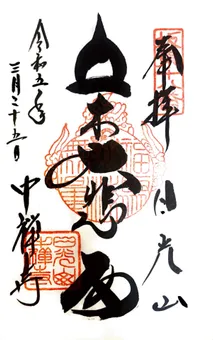 奉拝 日光山
立木大悲閣
令和五年
三月二十五日
中禅寺